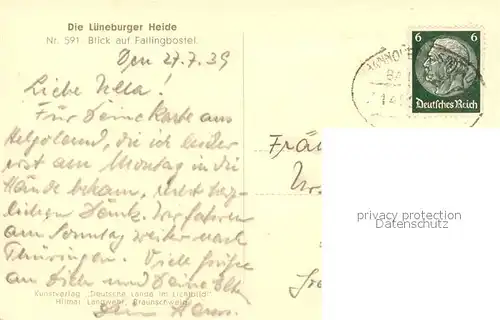 Die Lüneburger Heide
Nr. 591 Blick auf Fallingbostel.
Den 27.7.39
Liebe Ulla!
Für Deine Karte aus
Helgoland, die ich leider
erst am Montag in die
Hände bekam, herz-
lichen Dank. Wir fahren
am Sonntag weiter nach
Thüringen. Viele Grüße
an Dich und Deine Eltern
Dein
Kunstverlag „Deutsche Lande im Lichtbild"
Hilmar Langwehr, Braunschweig
6 6
Deutsches Reich
HANNOVER
BA
Fräu
privacy protection
Datenschutz